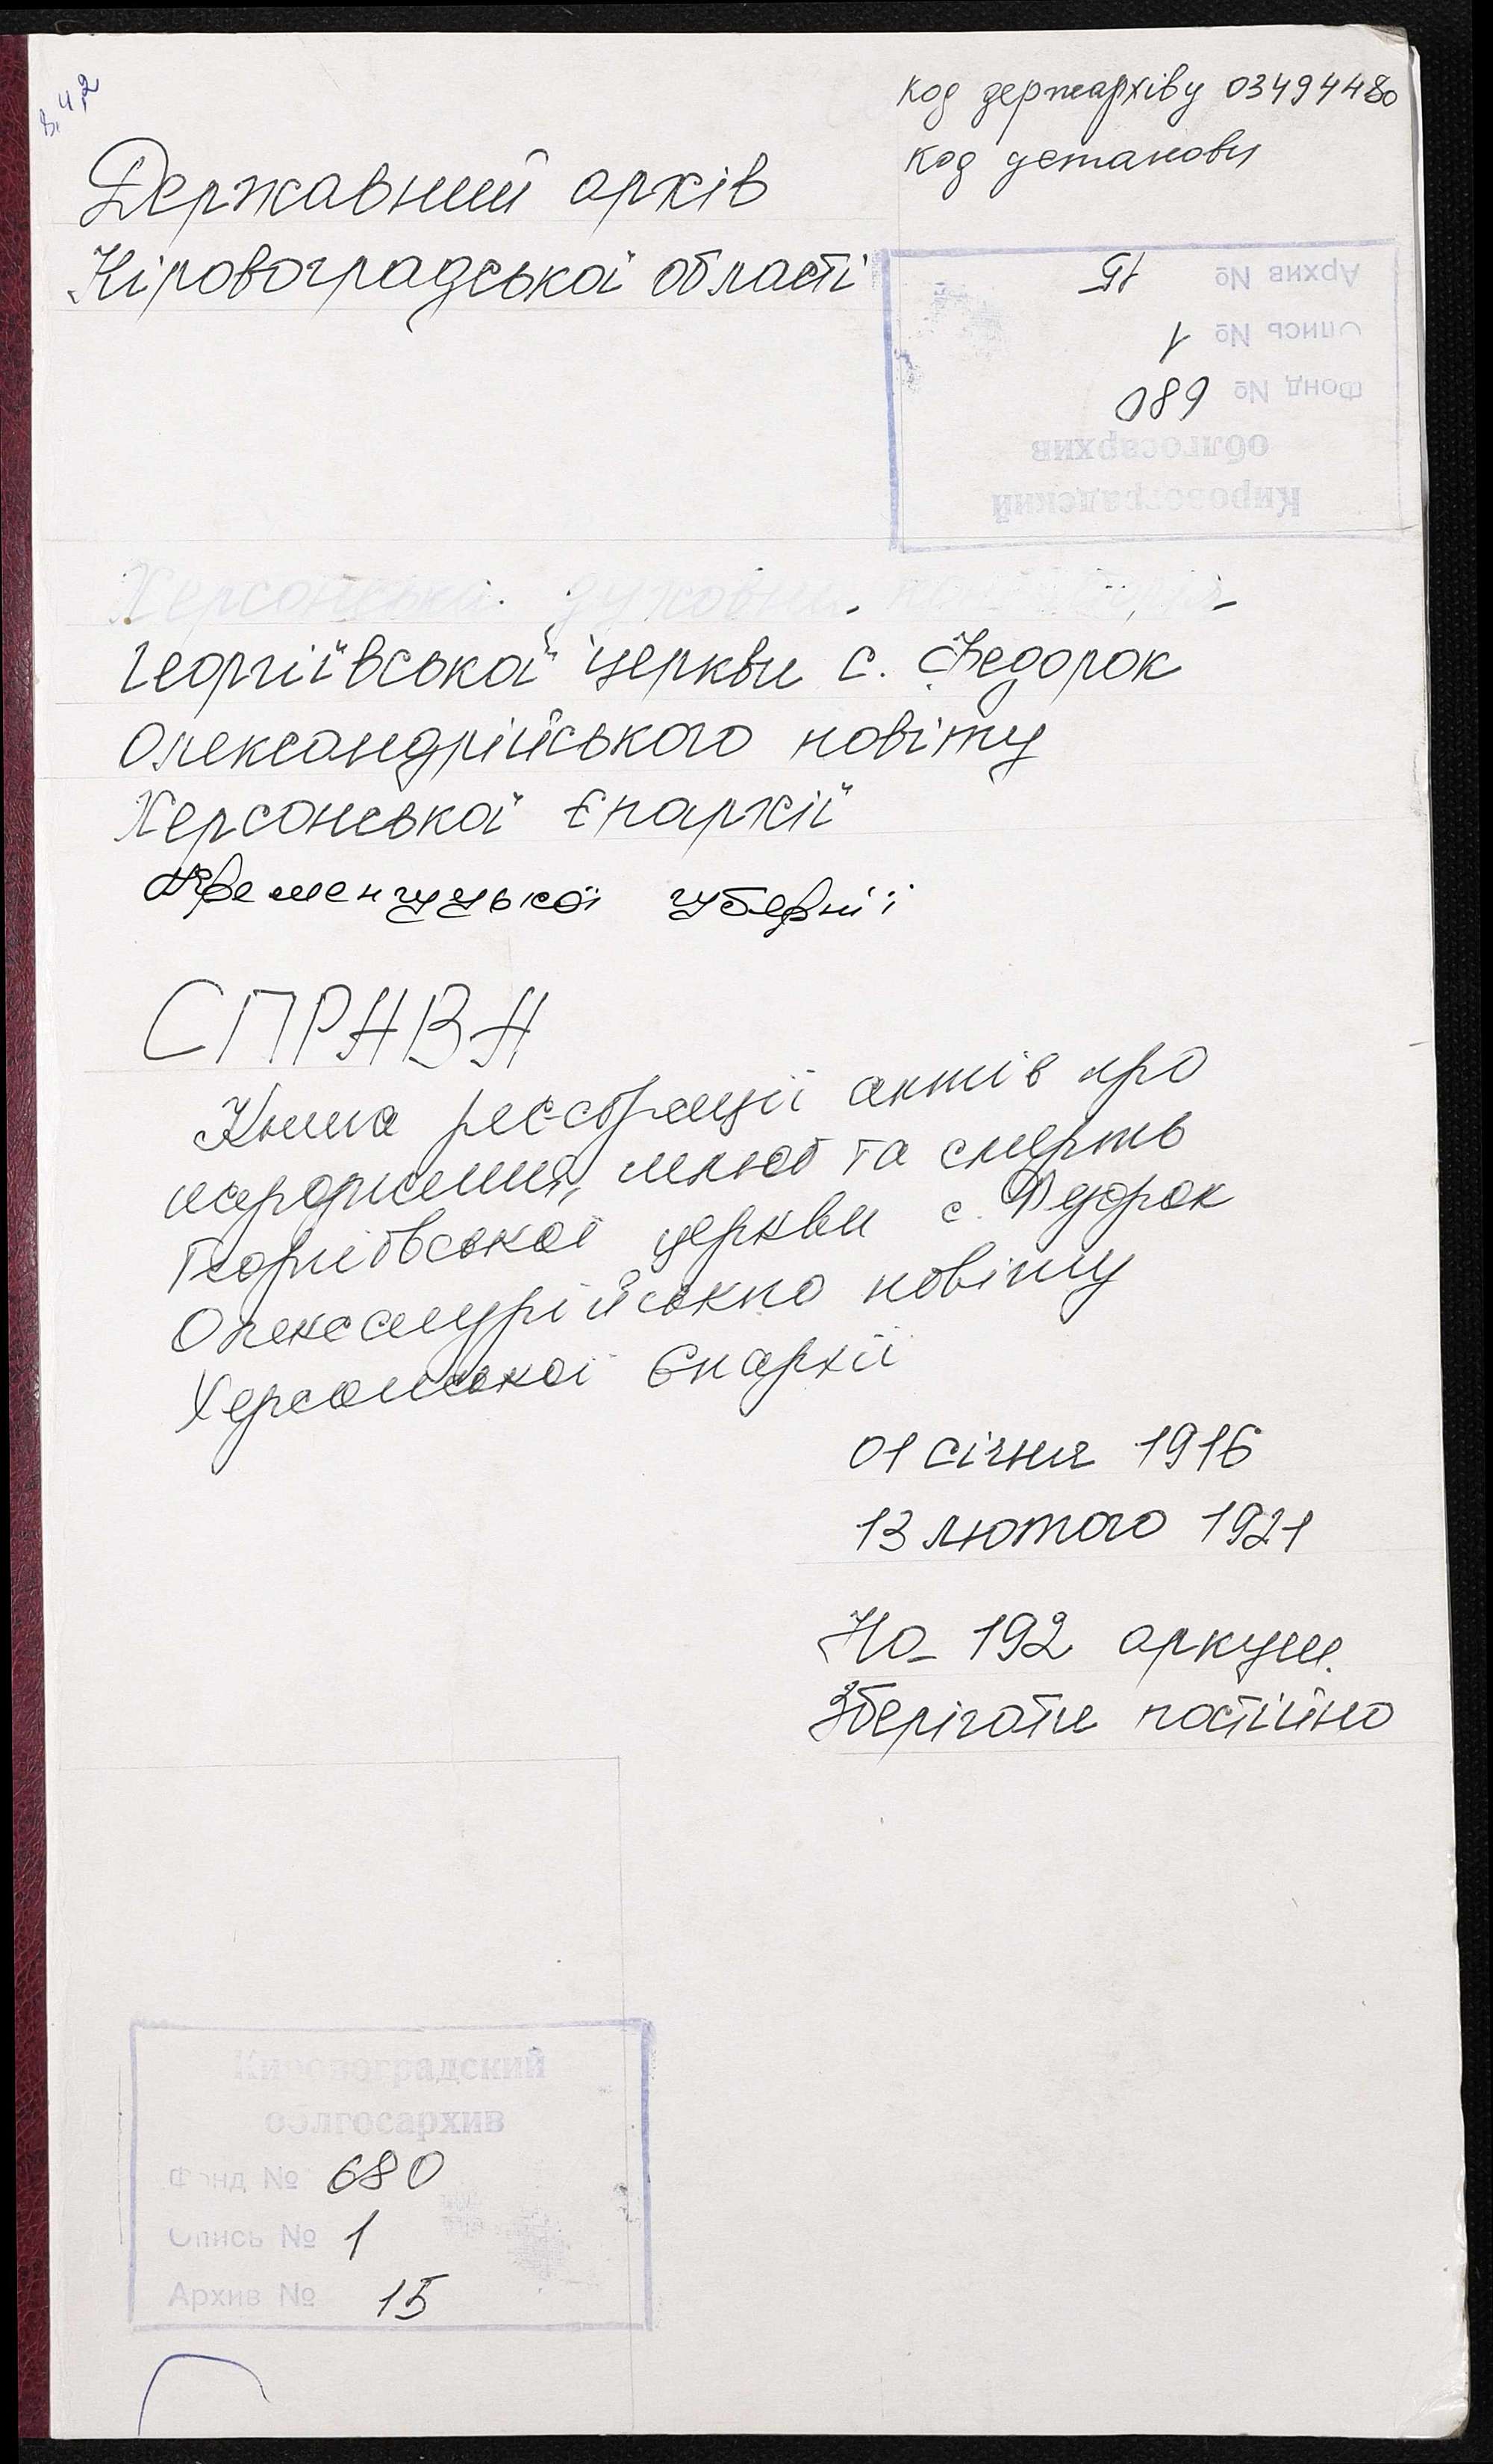 код держархіву 03494480
код установи
Державний архів
Кіровоградської області
Архив № 15
Опись № 1
Фонд № 680
облгосархив
Кировоградский
Херсонська духовна
Георгіївської церкви с. Федорок
Олександрійського повіту
Херсонської Єпархії
Кременчуцької губернії
СПРАВА
Книга реєстрації актів про
народження, шлюб та смерть
Георгіївської церкви с. Федорок
Олександрійського повіту
Херсонської Єпархії
01 січня 1916
13 лютого 1921
На 192 аркуш.
Зберігати постійно
Кировоградский
облгосархив
Фонд № 680
Опись № 1
Архив № 15